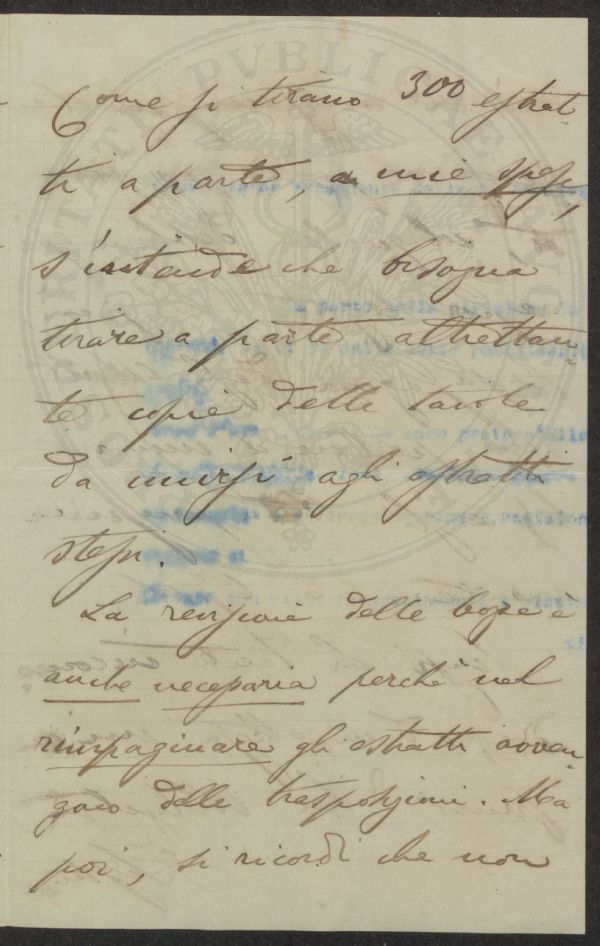 Come si tirano 300 estrat-
ti a parte, a mie spese,
s'intende che bisogna
tirare a parte altrettan-
te copie delle tavole
da unirsi agli estratti
stessi.
La revisione delle bozze è
anche necessaria perchè nel
rimpaginare gli estratti avven-
gono delle trasposizioni. Ma
poi, si ricordi che non